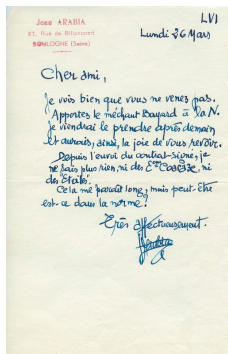 José ARABIA
27, Rue de Billancourt
BOULOGNE (Seine)
LVI
Lundi 26 Mars
Cher ami,
Je vois bien que vous ne venez pas.
Apportez le méchant Bayard à la N.
Je viendrai le prendre après demain
et aurais, ainsi, la joie de vous revoir.
Depuis l'envoi du contrat signé, je
ne sais plus rien, ni des Eons , ni
des "Etats".
Cela me paraît long, mais peut-être
est-ce dans la norme?
Très affectueusement.